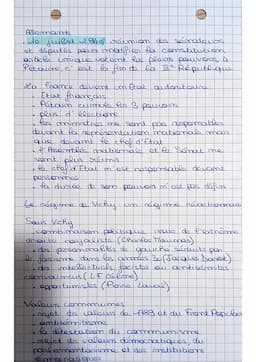 Allemagne
10 juillet 1940 réunion des sénateurs
et députés pour modifier la constitution
article unique votant les pleins pouvoirs à
Pétain, c'est la fin de la IIIe République
La France devient un Etat autoritaire
. Etat français
. Pétain cumule les 3 pouvoirs
. plus d'élections
. les ministres ne sont pas responsables
devant la représentation nationale mais
que devant le chef d'Etat
. l'Assemblée nationale et le Sénat ne
sont plus réunis
. le chef d'Etat n'est responsable devant
personne
. la durée de son pouvoir n'est pas défini
Le régime de Vichy un régime réactionnaire
Sous Vichy
. combinaison politique issue de l'extrême
droite royaliste (Charles Maurras)
. des personnalités de gauche séduits par
le fascisme dans les années 30 (Jacques Doriot)
. des intellectuels fascistes ou antisémites
convaincus (LF Céline)
. opportunistes (Pierre Laval)
Valeurs communes
. rejet des valeurs de 1789 et du Front Populaire
. antisémitisme
. la détestation du communisme
. rejet des valeurs démocratiques, du
parlementarisme et des institutions
démocratiques